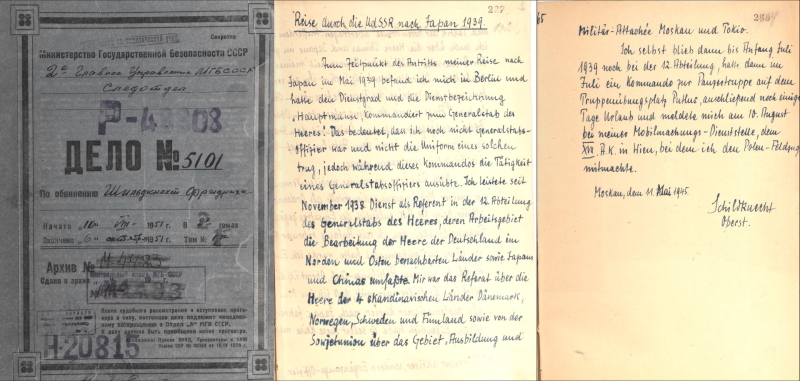 Секретно
Министерство Государственной Безопасности СССР
2е Главное Управление МГБ СССР
Следотдел
Р-48808
ДЕЛО № 5101
По обвинению Шильдкнехт Фридриха
Начато
1951 г.
В 2х томах
Окончено 6
1951 г.
Том №
Архив №
Сдано в архив
После судебного рассмотрения и вступления приговора
в силу, настоящее дело подлежит немедленному
возвращению в Отдел "А" МГБ СССР.
Н-20815
Reise durch die UdSSR nach Japan 1939.
Zum Zeitpunkt des Antritts meiner Reise nach
Japan im Mai 1939 befand ich mich in Berlin und
hatte den Dienstgrad und die Dienstbezeichnung
„Hauptmann, kommandiert zum Generalstab des
Heeres". Das bedeutet, dass ich noch nicht Generalstabs-
offizier war und nicht die Uniform eines solchen
trug, jedoch während dieses Kommandos die Tätigkeit
eines Generalstabsoffiziers ausübte. Ich leistete seit
November 1938 Dienst als Referent in der 12. Abteilung
des Generalstabs des Heeres, deren Arbeitsgebiet
die Bearbeitung der Heere der Deutschland im
Norden und Osten benachbarten Länder sowie Japans
und Chinas umfaßte. Mir war das Referat über die
Heere der 4 skandinavischen Länder Dänemark,
Norwegen, Schweden und Finnland sowie von der
Sowjetunion über das Gebiet „Ausbildung und
65
Militär-Attachée Moskau und Tokio.
Ich selbst blieb dann bis Anfang Juli
1939 noch bei der 12. Abteilung, hatte dann im
Juli ein Kommando zur Panzertruppe auf dem
Truppenübungsplatz Putlos, anschließend noch einige
Tage Urlaub und meldete mich am 10. August
bei meiner Mobilmachungs-Dienststelle, dem
XVII. A.K. in Wien, bei dem ich den Polen-Feldzug
mitmachte.
Moskau, den 11. Mai 1945.
Schildknecht
Oberst.